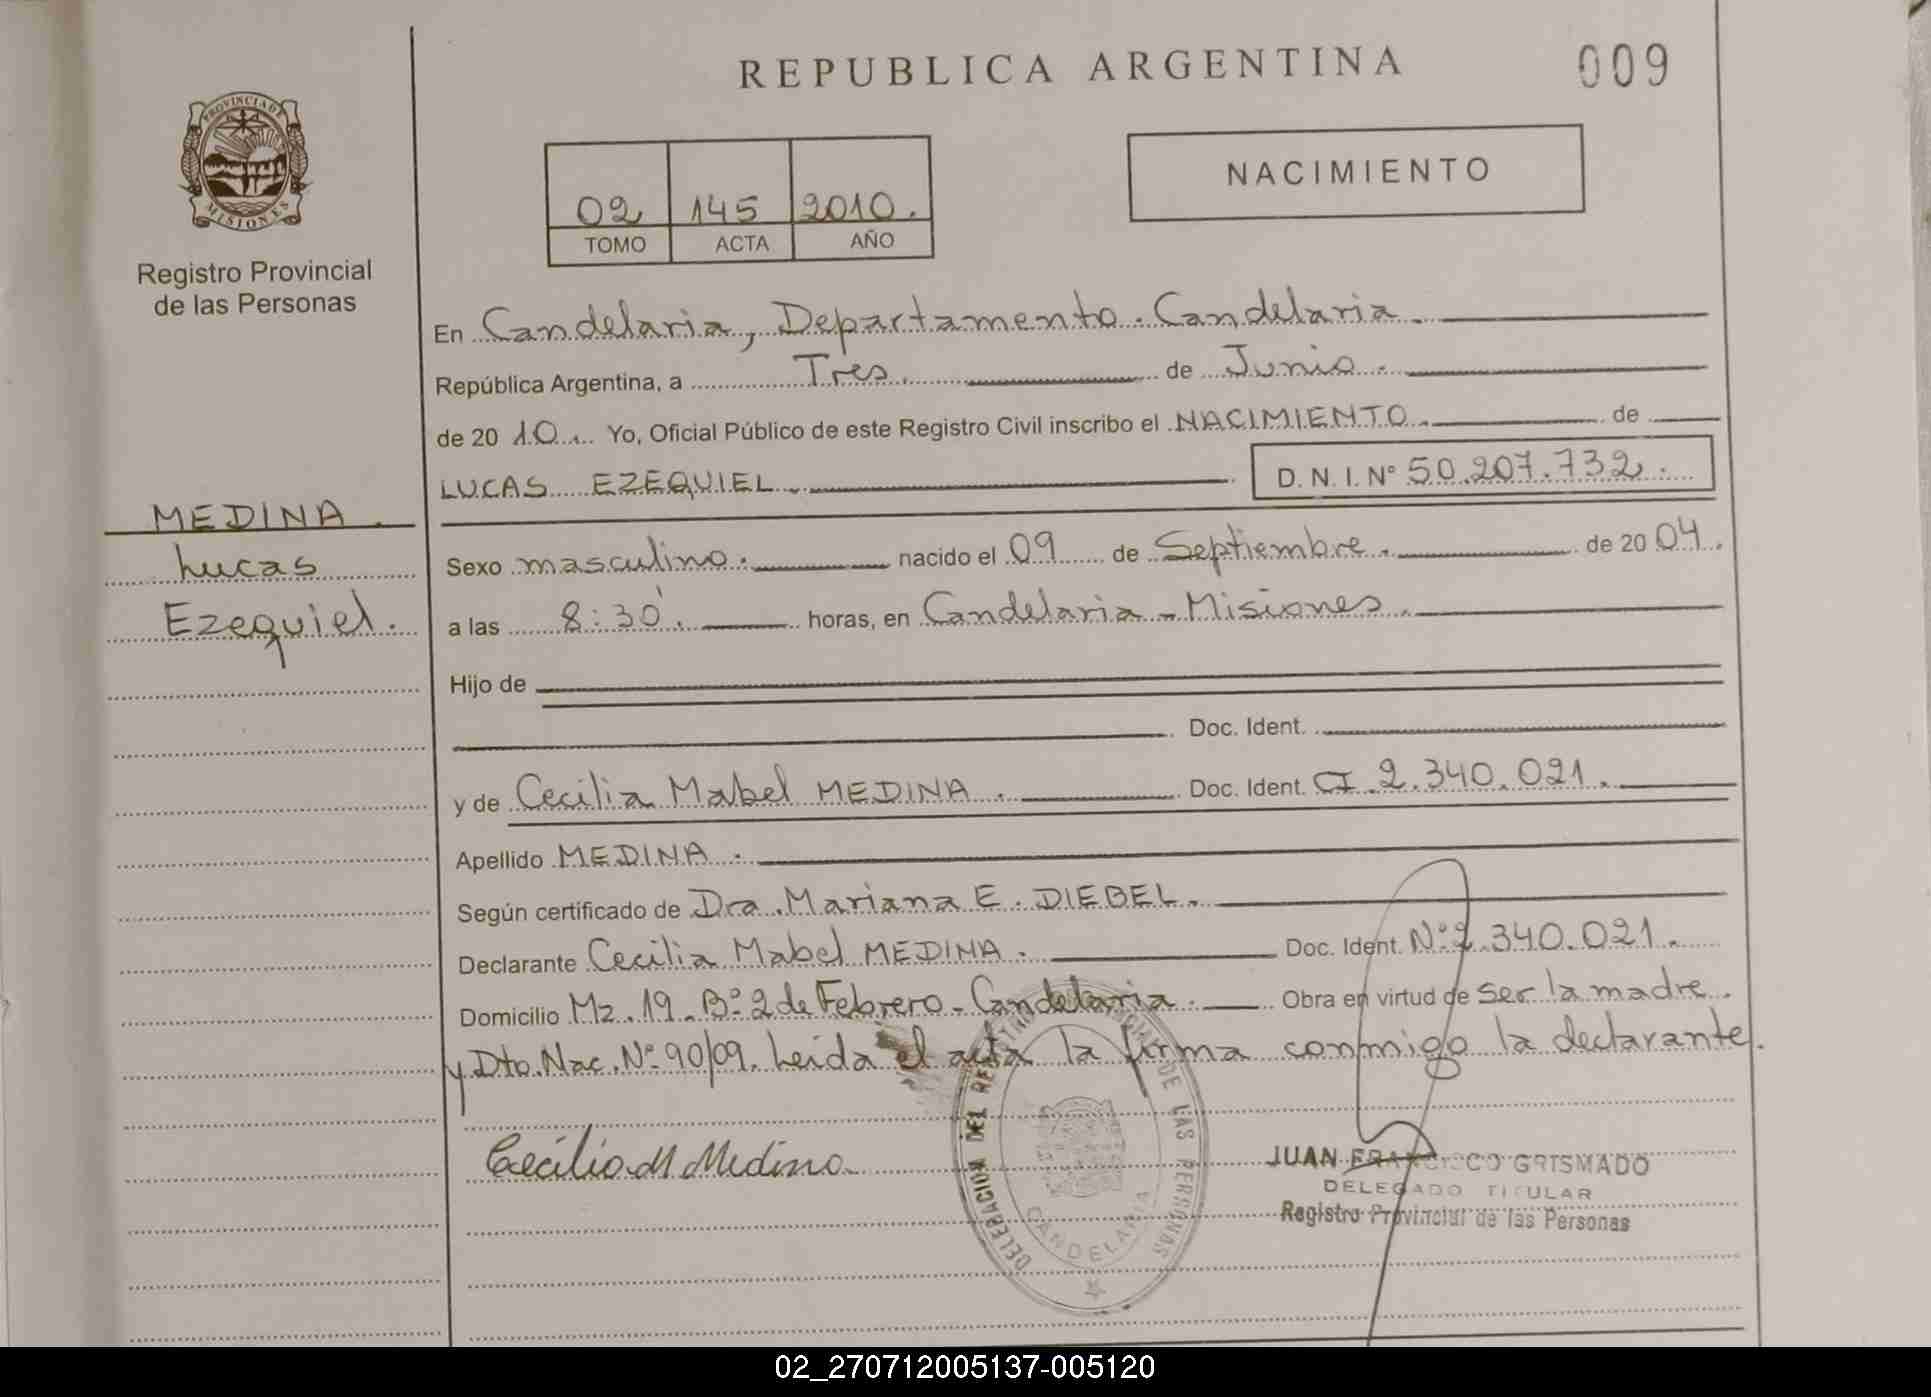 REPUBLICA ARGENTINA
009
PROVINCIA DE
MISIONES
Registro Provincial
de las Personas
02 145 2010.
TOMO ACTA AÑO
NACIMIENTO
En Candelaria, Departamento. Candelaria.
República Argentina, a Tres. de Junio.
de 20 10. Yo, Oficial Público de este Registro Civil inscribo el NACIMIENTO. de
LUCAS EZEQUIEL. D.N.I. Nº 50.207.732.
MEDINA.
Lucas
Ezequiel.
Sexo masculino. nacido el 09 de Septiembre. de 20 04.
a las 8:30'. horas, en Candelaria - Misiones.
Hijo de
Doc. Ident.
y de Cecilia Mabel MEDINA. Doc. Ident. CI.2.340.021.
Apellido MEDINA.
Según certificado de Dra. Mariana E. DIEBEL.
Declarante Cecilia Mabel MEDINA. Doc. Ident. Nº2.340.021.
Domicilio Mz. 19. Bº 2 de Febrero - Candelaria. Obra en virtud de ser la madre.
y Dto. Nac. Nº 90/09. Leida el acta la firma conmigo la declarante.
Cecilia M Medina
DELEGACION DEL REGISTRO PROVINCIAL DE LAS PERSONAS
CANDELARIA
JUAN FRANCISCO GRISMADO
DELEGADO TITULAR
Registro Provincial de las Personas
02_270712005137-005120